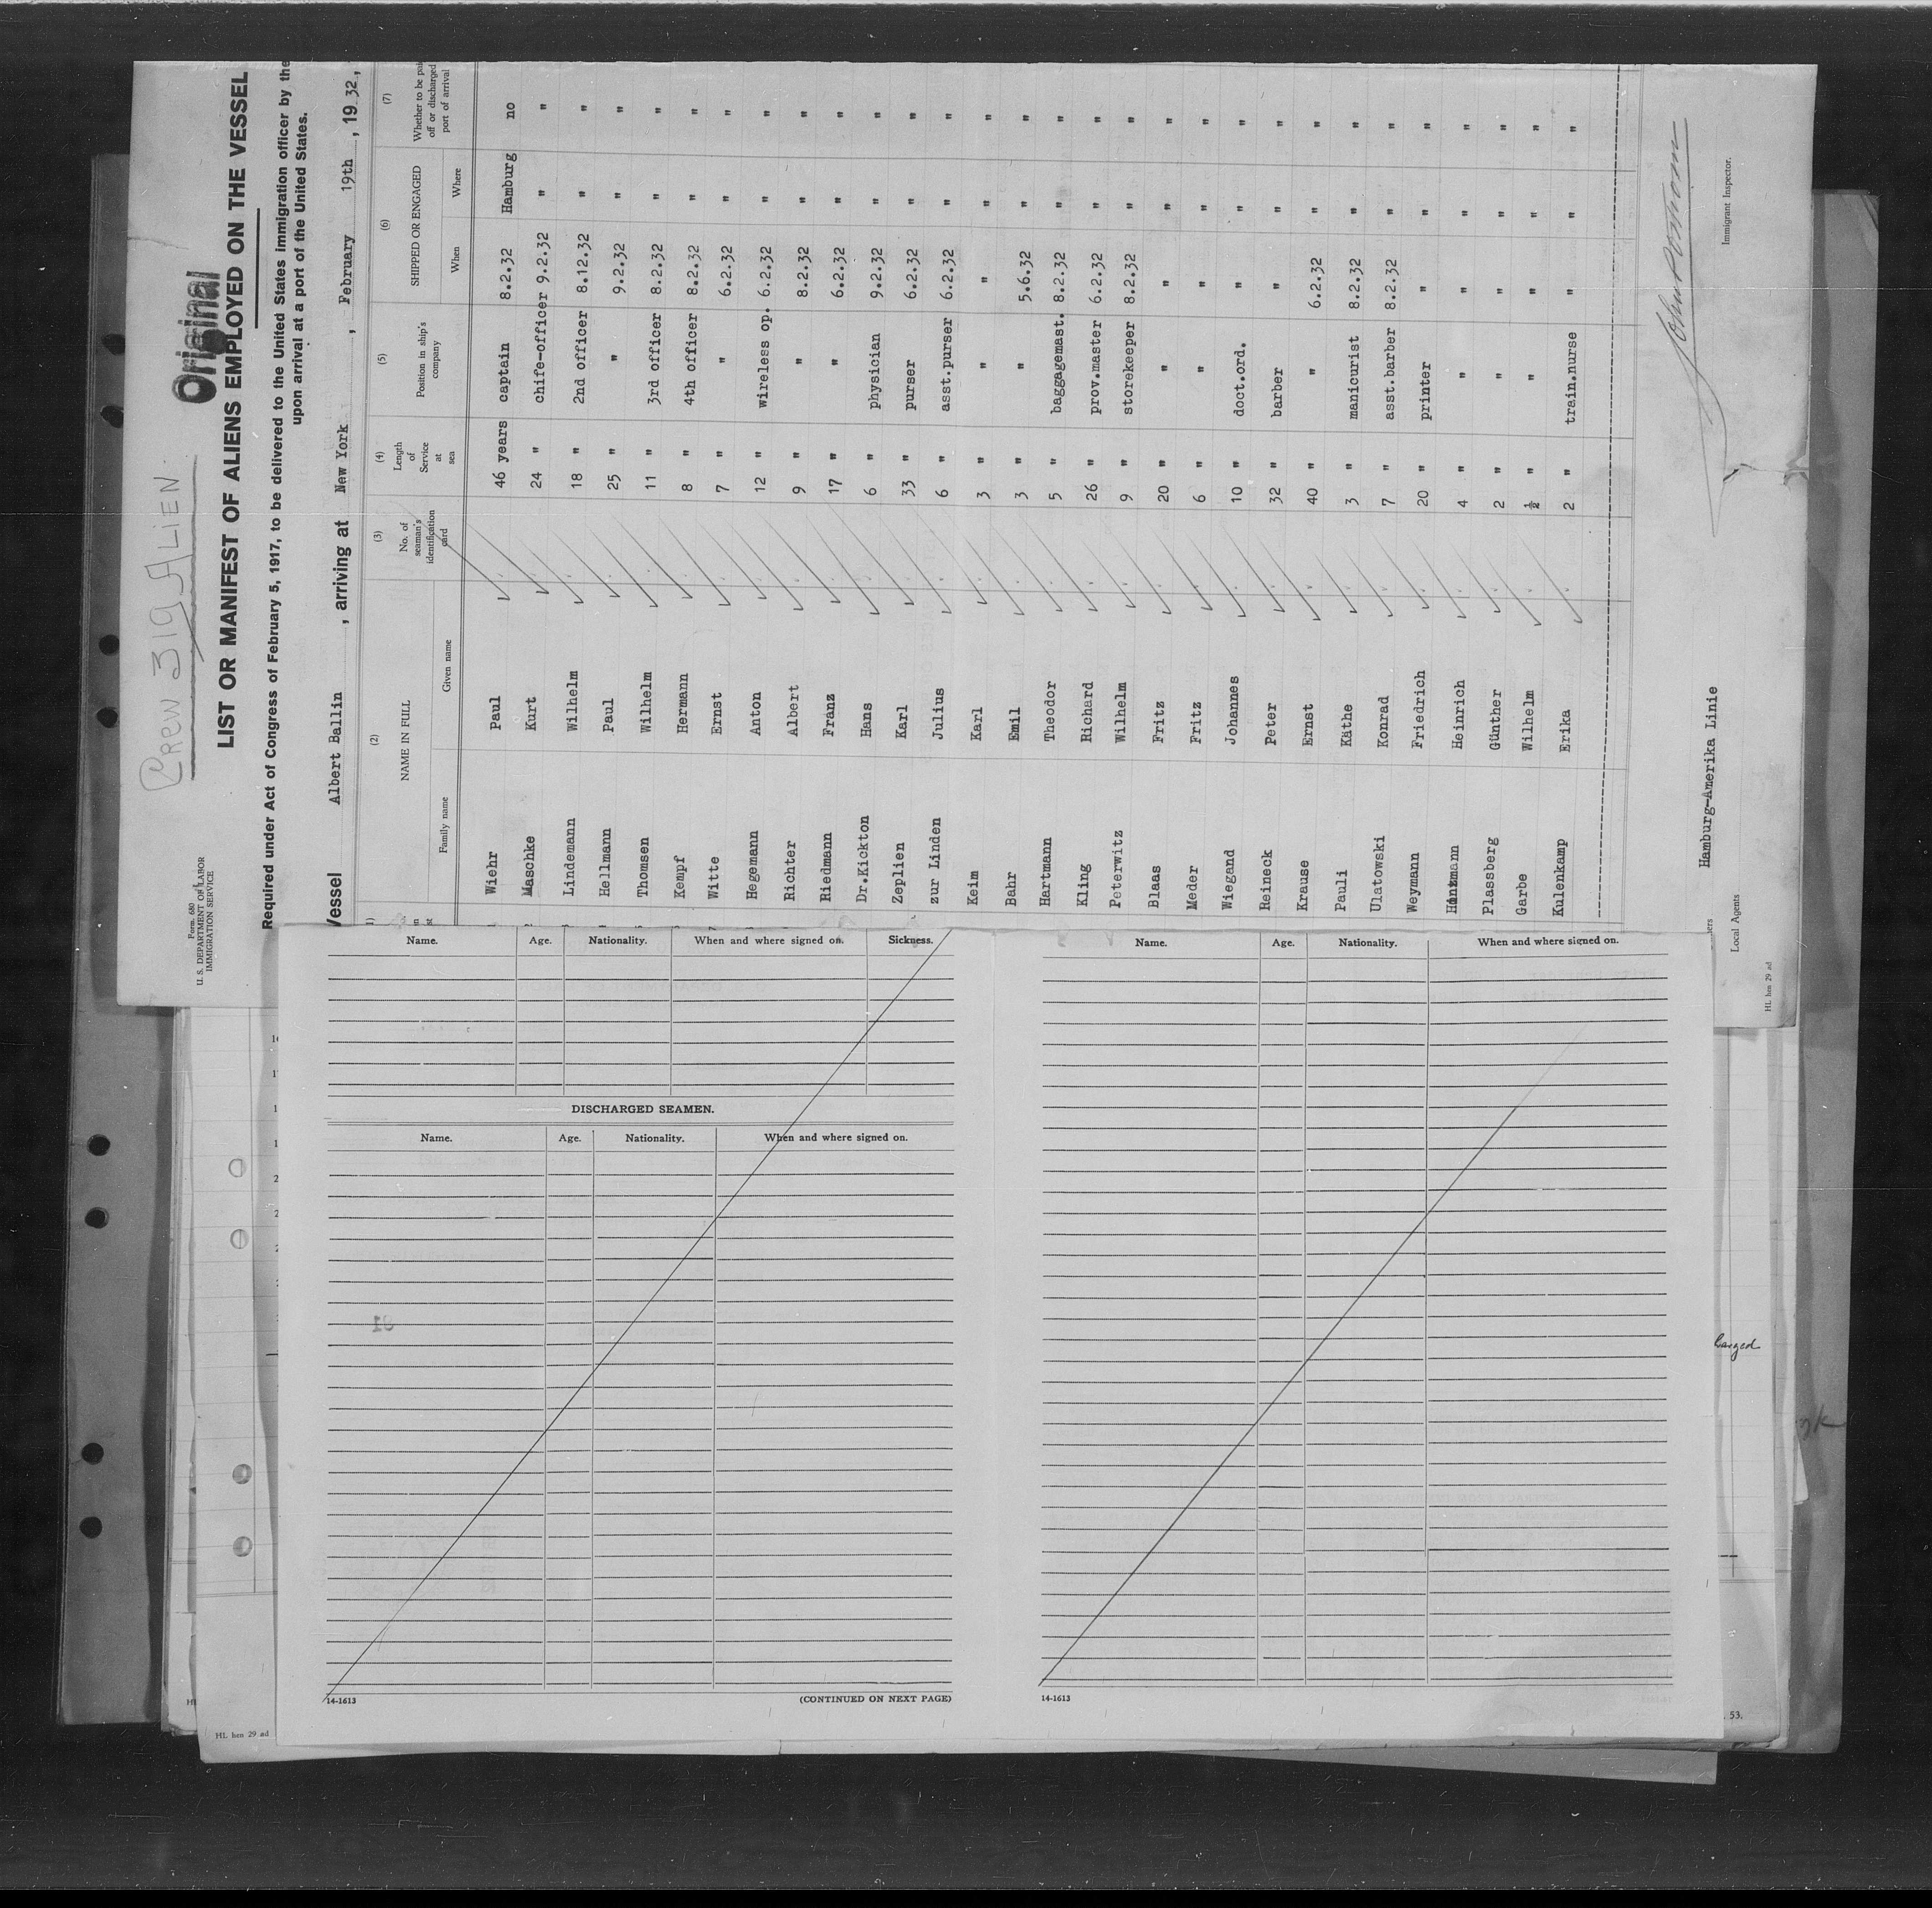 Crew 319 ALIEN
Original
Form 680
U. S. DEPARTMENT OF LABOR
IMMIGRATION SERVICE
LIST OR MANIFEST OF ALIENS EMPLOYED ON THE VESSEL
Required under Act of Congress of February 5, 1917, to be delivered to the United States immigration officer by the
upon arrival at a port of the United States.
Vessel Albert Ballin, arriving at New York, February 19th, 1932,
(2) (3) (4) (5) (6) (7)
NAME IN FULL No. of seaman's identification card Length of Service at sea Position in ship's company SHIPPED OR ENGAGED Whether to be paid off or discharged port of arrival
Family name Given name When Where
Wiehr Paul 46 years captain 8.2.32 Hamburg no
Maschke Kurt 24 " chife-officer 9.2.32 " "
Lindemann Wilhelm 18 " 2nd officer 8.12.32 " "
Hellmann Paul 25 " " 9.2.32 " "
Thomsen Wilhelm 11 " 3rd officer 8.2.32 " "
Kempf Hermann 8 " 4th officer 8.2.32 " "
Witte Ernst 7 " " 6.2.32 " "
Hegemann Anton 12 " wireless op. 6.2.32 " "
Richter Albert 9 " " 8.2.32 " "
Riedmann Franz 17 " " 6.2.32 " "
Dr.Kickton Hans 6 " physician 9.2.32 " "
Zeplien Karl 33 " purser 6.2.32 " "
zur Linden Julius 6 " asst.purser 6.2.32 " "
Keim Karl 3 " " " " "
Bahr Emil 3 " " 5.6.32 " "
Hartmann Theodor 5 " baggagemast. 8.2.32 " "
Kling Richard 26 " prov.master 6.2.32 " "
Peterwitz Wilhelm 9 " storekeeper 8.2.32 " "
Blaas Fritz 20 " " " " "
Meder Fritz 6 " " " " "
Wiegand Johannes 10 " doct.ord. " " "
Reineck Peter 32 " barber " " "
Krause Ernst 40 " " 6.2.32 " "
Pauli Käthe 3 " manicurist 8.2.32 " "
Ulatowski Konrad 7 " asst.barber 8.2.32 " "
Weymann Friedrich 20 " printer " " "
Heinrich 4 " " " " "
Plassberg Günther 2 " " " " "
Garbe Wilhelm ½ " " " " "
Kulenkamp Erika 2 " train.nurse " " "
Hamburg-Amerika Linie
Local Agents
Immigrant Inspector.
HL hm 29 ad
Name. Age. Nationality. When and where signed on. Sickness.
DISCHARGED SEAMEN.
Name. Age. Nationality. When and where signed on.
14-1613 (CONTINUED ON NEXT PAGE)
Name. Age. Nationality. When and where signed on.
14-1613
HL hm 29 ad
53.